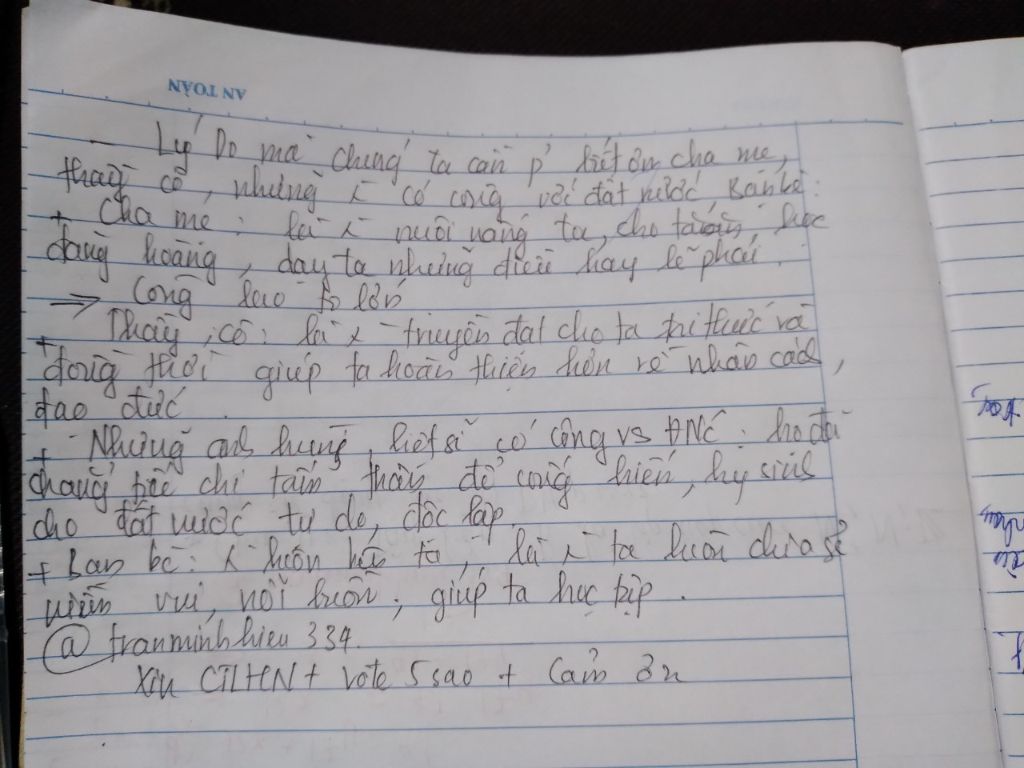 AN TOÀN
- Lý Do mà chúng ta cần p' biết ơn cha mẹ,
thầy cô, những x có công với đất nước, bạn bè:
+ Cha mẹ: là x nuôi nấng ta, cho ta học
đàng hoàng, dạy ta những điều hay lẽ phải.
=> Công lao to lớn
+ Thầy, cô: là x truyền đạt cho ta tri thức và
đồng thời giúp ta hoàn thiện hơn về nhân cách,
đạo đức.
+ Những anh hùng, liệt sĩ có công vs ĐNC: họ đã
chẳng tiếc chi tấm thân để cống hiến, hy sinh
cho đất nước tự do, độc lập.
+ Bạn bè: x luôn bên ta, là x ta luôn chia sẻ
niềm vui, nỗi buồn, giúp ta học tập.
@tranminhhieu334.
Xin CTLHN + Vote 5 sao + Cảm ơn